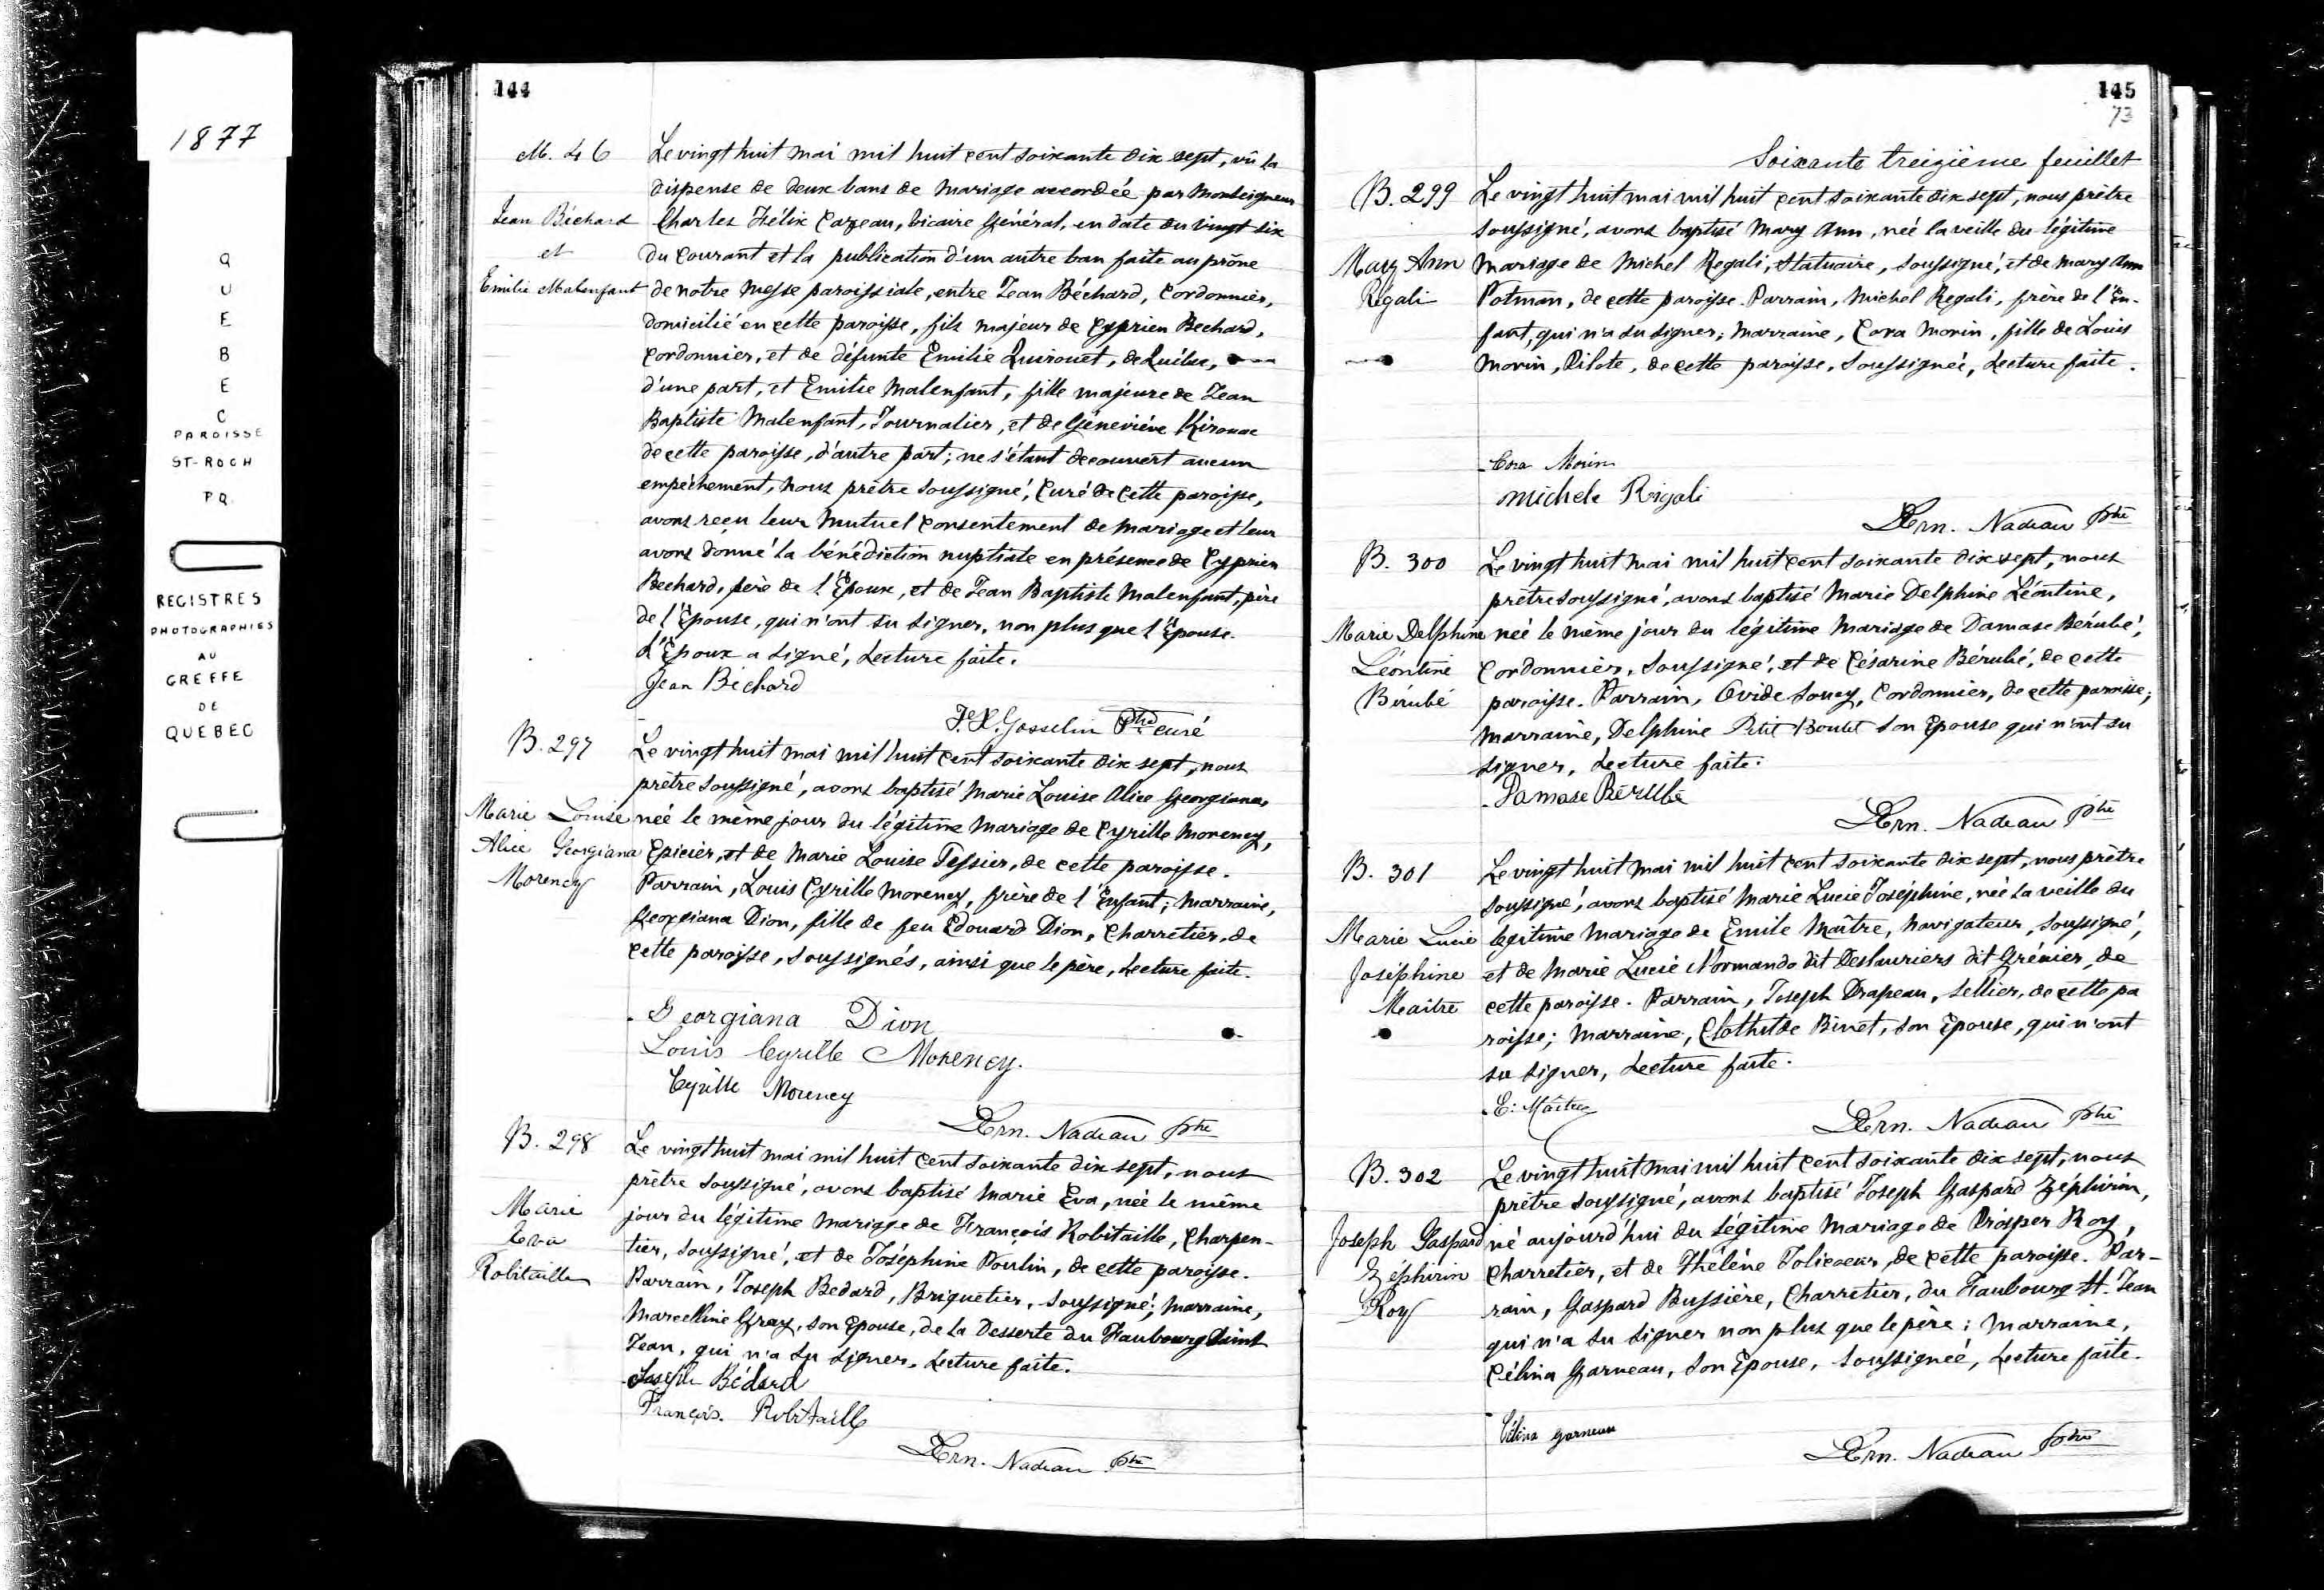 1877
QUEBEC
PAROISSE
ST-ROCH
PQ.
REGISTRES
PHOTOGRAPHIES
AU
GREFFE
DE
QUEBEC
144
M. 46
Jean Béchard
et
Emilie Malenfant
Le vingt huit mai mil huit cent soixante dix sept, vû la
dispense de deux bans de mariage accordée par Monseigneur
Charles Félix Cazeau, Vicaire Général, en date du vingt six
du courant et la publication d'un autre ban faite au prône
de notre messe paroissiale, entre Jean Béchard, Cordonnier,
domicilié en cette paroisse, fils majeur de Cyprien Bechard,
Cordonnier, et de défunte Emilie Quirouet, de Québec,
d'une part, et Emilie Malenfant, fille majeure de Jean
Baptiste Malenfant, Journalier, et de Géneviève Kirouac
de cette paroisse, d'autre part; ne s'étant decouvert aucun
empêchement, nous prêtre soussigné, Curé de cette paroisse,
avons reçu leur mutuel consentement de mariage et leur
avons donné la bénédiction nuptiale en présence de Cyprien
Bechard, père de l'Epoux, et de Jean Baptiste Malenfant, père
de l'Epouse, qui n'ont su signer, non plus que l'Epouse.
L'Epoux a signé, Lecture faite.
Jean Béchard
F. X. Gosselin Ptre curé
B. 297
Marie Louise
Alice Georgiana
Morency
Le vingt huit mai mil huit cent soixante dix sept, nous
prêtre soussigné, avons baptisé Marie Louise Alice Georgiana,
née le même jour du légitime mariage de Cyrille Morency,
Epicier, et de Marie Louise Tessier, de cette paroisse.
Parrain, Louis Cyrille Morency, frère de l'Enfant; Marraine,
Georgiana Dion, fille de feu Edouard Dion, Charretier, de
cette paroisse, soussignés, ainsi que le père, Lecture faite.
Georgiana Dion
Louis Cyrille Morency.
Cyrille Morency
Ern. Nadeau Ptre
B. 298
Marie
Eva
Robitaille
Le vingt huit mai mil huit cent soixante dix sept, nous
prêtre soussigné, avons baptisé Marie Eva, née le même
jour du légitime mariage de François Robitaille, Charpen-
tier, soussigné, et de Joséphine Poulin, de cette paroisse.
Parrain, Joseph Bedard, Briquetier, soussigné; Marraine,
Marcelline Gray, son Epouse, de la Desserte du Faubourg Saint
Jean, qui n'a su signer, Lecture faite.
Joseph Bédard
François. Robitaille
Ern. Nadeau Ptre
145
73
Soixante treizième feuillet
B. 299
Mary Ann
Régali
Le vingt huit mai mil huit cent soixante dix sept, nous prêtre
soussigné, avons baptisé Mary Ann, née la veille du légitime
mariage de Michel Regali, Statuaire, soussigné, et de Mary Ann
Potman, de cette paroisse. Parrain, Michel Regali, frère de l'En-
fant, qui n'a su signer; Marraine, Cora Morin, fille de Louis
Morin, Pilote, de cette paroisse, soussignée, Lecture faite.
Cora Morin
Michele Rigali
Ern. Nadeau Ptre
B. 300
Marie Delphine
Léontine
Bérubé
Le vingt huit mai mil huit cent soixante dix sept, nous
prêtre soussigné, avons baptisé Marie Delphine Léontine,
née le même jour du légitime mariage de Damase Bérubé,
Cordonnier, soussigné, et de Césarine Bérubé, de cette
paroisse. Parrain, Ovide Soucy, Cordonnier, de cette paroisse;
Marraine, Delphine Petit Boulet son Epouse qui n'ont su
signer, Lecture faite.
Damase Bérubé
Ern. Nadeau Ptre
B. 301
Marie Lucie
Joséphine
Maitre
Le vingt huit mai mil huit cent soixante dix sept, nous prêtre
soussigné, avons baptisé Marie Lucie Joséphine, née la veille du
legitime mariage de Emile Maître, Navigateur, soussigné,
et de Marie Lucie Normando dit Deslauriers dit Grénier, de
cette paroisse. Parrain, Joseph Drapeau, Sellier, de cette pa
roisse; Marraine, Clothilde Binet, son Epouse, qui n'ont
su signer, Lecture faite.
E. Maitre
Ern. Nadeau Ptre
B. 302
Joseph Gaspard
Zéphirin
Roy
Le vingt huit mai mil huit cent soixante dix sept, nous
prêtre soussigné, avons baptisé Joseph Gaspard Zéphirin,
né aujourd'hui du légitime mariage de Prosper Roy,
Charretier, et de Hélène Jolicoeur, de cette paroisse. Par-
rain, Gaspard Bussière, Charretier, du Faubourg St. Jean
qui n'a su signer non plus que le père; Marraine,
Célina Garneau, son Epouse, soussignée, Lecture faite.
Célina Garneau
Ern. Nadeau Ptre